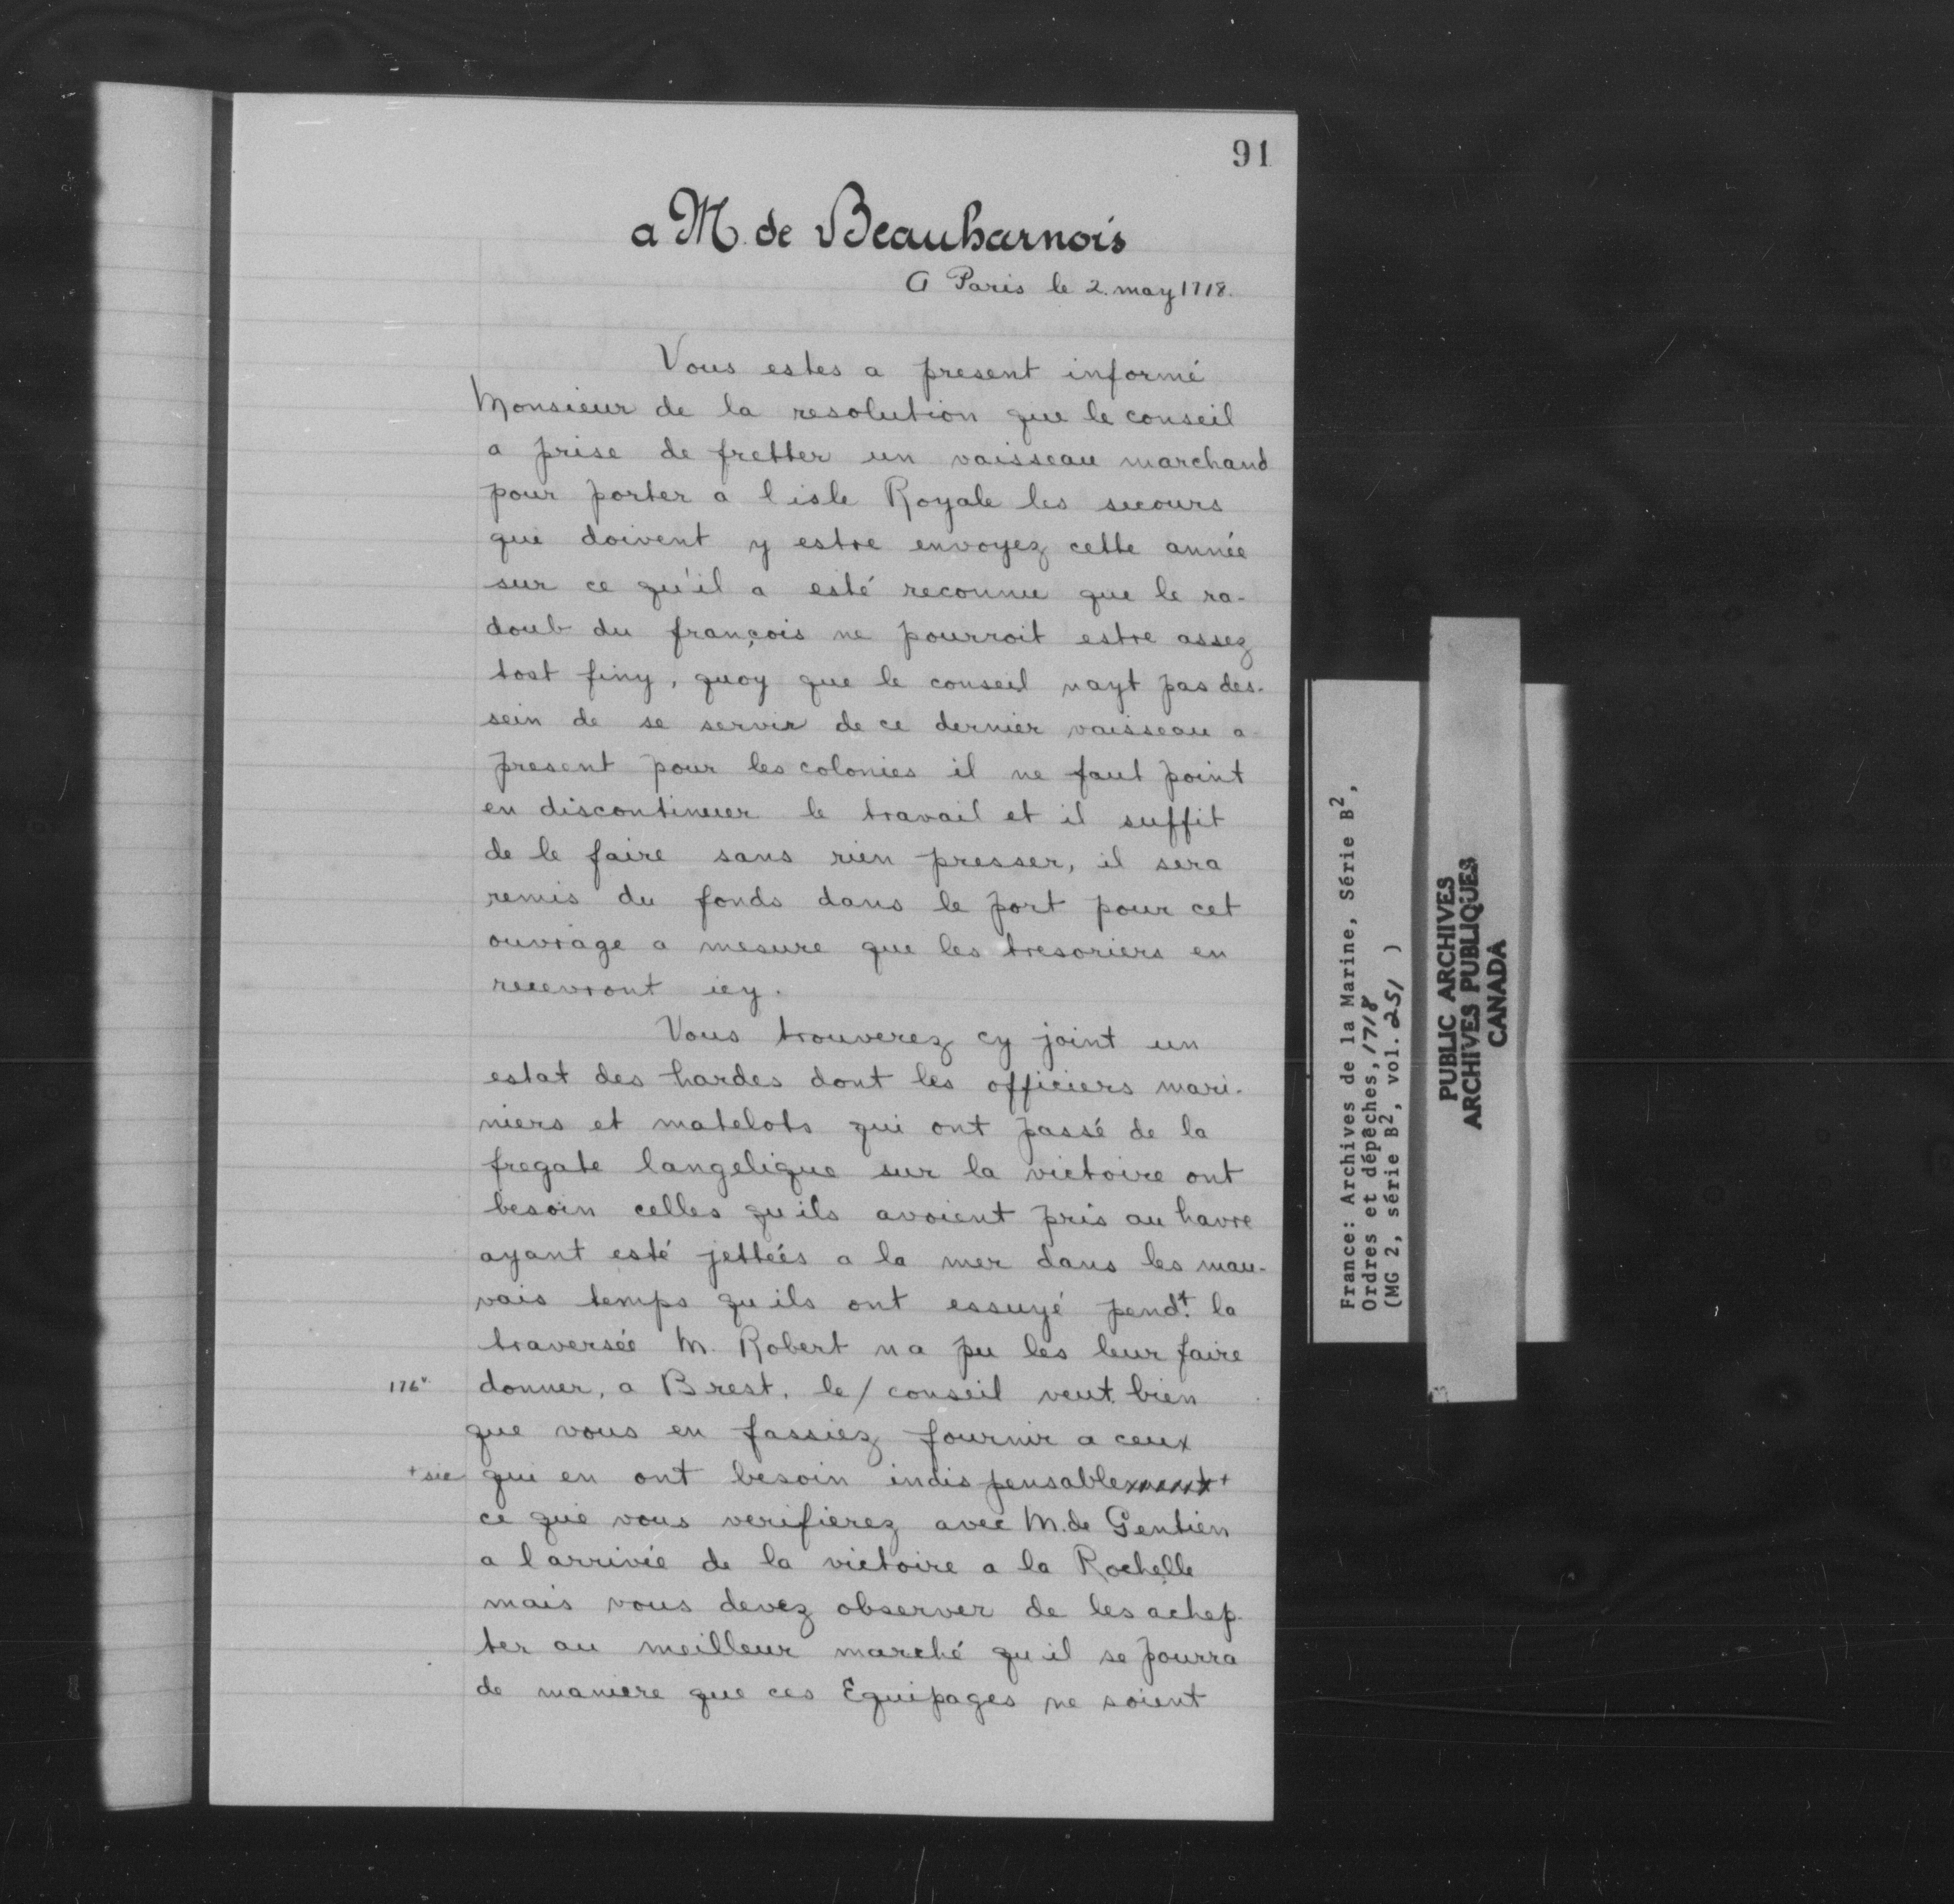 91
a M. de Beauharnois
A Paris le 2. may 1718.
Vous estes a present informé
Monsieur de la resolution que le conseil
a prise de fretter un vaisseau marchand
pour porter a lisle Royale les secours
que doivent y estre envoyez cette année
sur ce qu'il a esté reconnu que le ra-
doub du françois ne pourroit estre assez
tost finy, quoy que le conseil nayt pas des-
sein de se servir de ce dernier vaisseau a
present pour les colonies il ne faut point
en discontinuer le travail et il suffit
de le faire sans rien presser, il sera
remis du fonds dans le port pour cet
ouvrage a mesure que les tresoriers en
recevront icy.
Vous trouverez cy joint un
estat des hardes dont les officiers mari-
niers et matelots qui ont passé de la
fregate langelique sur la victoire ont
besoin celles quils avoient pris au havre
ayant esté jettées a la mer dans les mau-
vais temps quils ont essuyé pendt. la
traversée M. Robert na pu les leur faire
176v. donner, a Brest, le / conseil veut bien
que vous en fassiez fournir a ceux
+ sic qui en ont besoin indispensablement +
ce que vous verifierez avec M. de Gentien
a larrivée de la victoire a la Rochelle
mais vous devez observer de les achep-
ter au meilleur marché quil se pourra
de maniere que ces Equipages ne soient
France: Archives de la Marine, Série B2,
Ordres et dépêches, 1718
(MG 2, série B2, vol. 251 )
PUBLIC ARCHIVES
ARCHIVES PUBLIQUES
CANADA